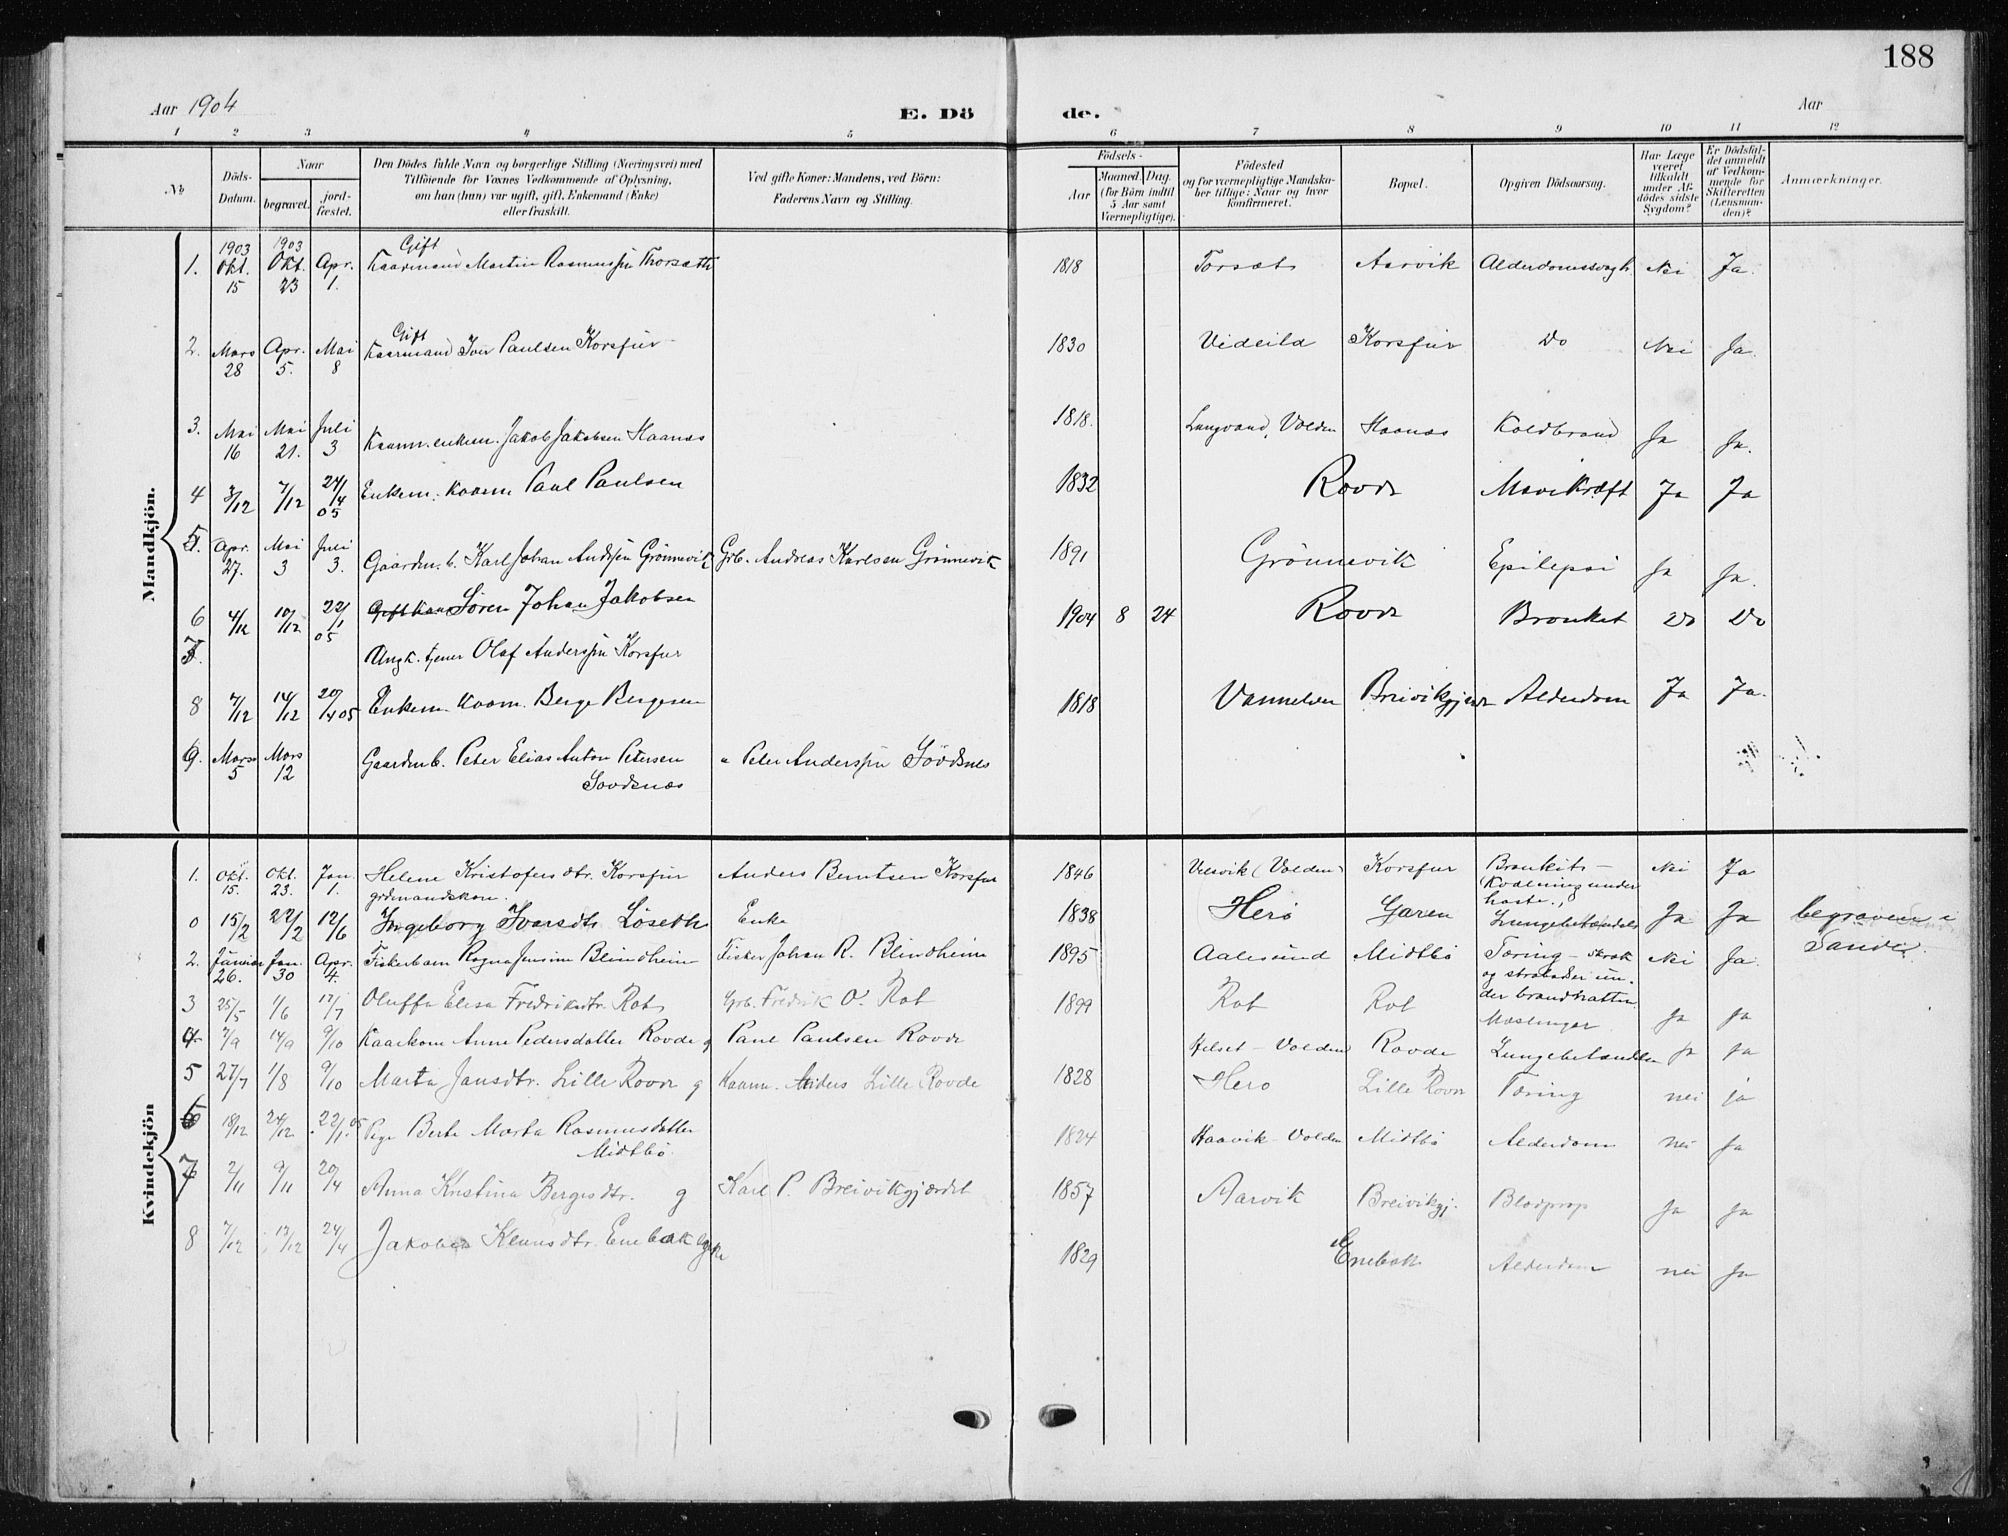 188
Aar 1904
E. Dö
de.
Aar
1 2 3 4 5 6 7 8 9 10 11 12
No
Döds-Datum.
Naar
begravet.
jord-fæstet.
Den Dödes fulde Navn og borgerlige Stilling (Næringsvei) med
Tilföiende for Voxnes Vedkommende af Oplysning,
om han (hun) var ugift, gift, Enkemand (Enke)
eller fraskilt.
Ved gifte Koner: Mandens, ved Börn:
Faderens Navn og Stilling.
Födsels-
Aar
Maaned. Dag.
(for Börn indtil
5 Aar samt
Værnepligtige).
Födested
og for værnepligtige Mandska-
ber tillige: Naar og hvor
konfirmeret.
Bopæl.
Opgiven Dödsaarsag.
Har Læge
været
tilkaldt
under Af-
dödes sidste
Sygdom?
Er Dödsfal-
det anmeldt
af Vedkom-
mende for
Skifteretten
(Lensman-
den)?
Anmærkninger.
Mandkjön.
1. 1903 Okt. 15 1903 Okt. 23 Apr. 1. Gift Kaarmand Martin Rasmussen Thorsæth 1818 Torsæt Aarvik Alderdomssvagh. Nei Ja.
2. Mars 28 Apr. 5. Mai 8 Gift Kaarmand Iver Paulsen Korsfur 1830 Videild Korsfur Do Nei Ja.
3. Mai 16 Mai 21. Juli 3 Kaarm. enkem. Jakob Jakobsen Haanæs 1818. Langvand, Volden Haanæs Koldbrand Ja Ja.
4 3/12 7/12 24/1 14 05 Enkem. Kaarm Paul Paulsen 1832 Rovde Mavekræft Ja Ja
5. Apr. 27. Mai 3 Juli 3. Gaardm. b. Karl Johan Andrsen Grönnevik Grb. Andreas Karlsen Grönnevik 1891 Grönnevik Epilepsi Ja Ja.
6 4/12 10/12 22/1 05 Sören Johan Jakobsen 1904 8 24 Rovde Bronket Do Do
7. Ungk. tjener Olaf Anderssen Korsfur
8 7/12 14/12 20/4 05 Enkem. Kaarm. Berge Bergesen 1818 Vannelven Breivikgjerde Alderdom Ja Ja.
9. Mars 5 Mars 12 Gaardm b. Peter Elias Anton Petersen
Sovdsnæs " Peter Anderssen Sövdsnes
Kvindekjön
1. Okt. 15. Okt. 23. Jan. 1. Helene Kristofersdtr. Korsfur
grdmandskone. Anders Berntsen Korsfur 1846 Velsvik (Volden) Korsfur Bronkit-
(Kvælning under
hoste.) Nei Ja
0 15/2 22/2 12/6 Ingeborg Ivarsdtr Löseth Enke 1838 Herö Garen Lungebetændels Ja Ja begraven i
Sande.
2. Januar 26. Jan. 30 Apr. 4. Fiskerbarn Ragna Jensine Blindheim Fisker Johan R. Blindheim 1895 Aalesund Midtbö Tæring - skræk
og strabadser un-
der brandnatten Nei Ja.
3 25/5 1/6 17/7 Oluffa Elisa Fredriksdtr. Rot Grb. Fredrik O. Rot 1899 Rot Rot Mæslinger Ja Ja
4 7/9 14/9 9/10 Kaarkone Anne Pedersdatter Rovde g Paul Paulsen Rovde Kilset - Volden Rovde Lungebetændelse ja ja
5 27/7 1/8 9/10 Marta Jansdtr. Lille Rovde g Kaarm. Anders Lille Rovde 1828 Herö Lille Rovde Tæring nei ja
6 18/12 24/12 22/1 05 Pige Berte Marta Rasmusdatter
Midtbö. 1824 Haavik - Volden Midtbö Alderdom nei Ja
7 2/11 9/11 20/4 Anna Kristina Bergesdtr. g Karl P. Breivikgjærdet 1857 Aarvik Breivikgj. Blodprop Ja Ja
8 7/12 13/12 24/4 Jakobea Knudsdtr. Enebak 1829 Enebak Alderdom nei Ja